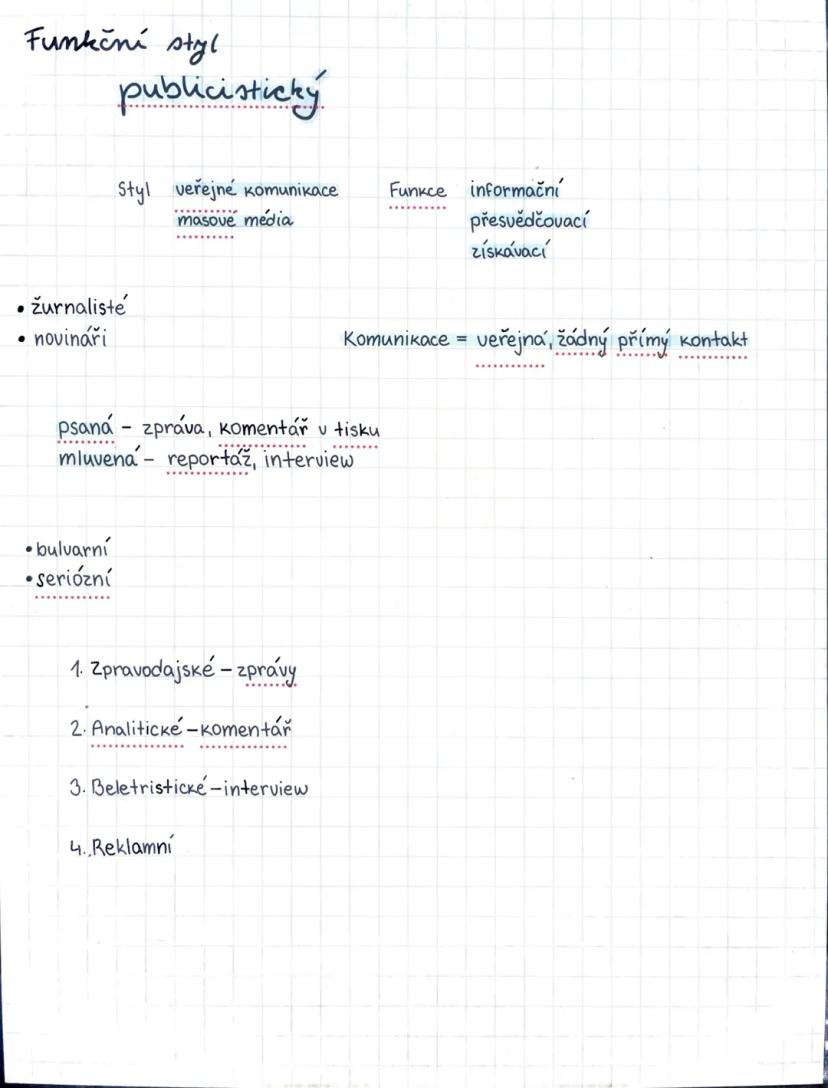 Funkční styl
publicistický
Styl veřejné komunikace
masové média
Funkce informační
přesvědčovací
získávací
• žurnalisté
• novináři
Komunikace = veřejná, žádný přímý kontakt
psaná - zpráva, komentář v tisku
mluvená - reportáž, interview
• bulvarní
• seriózní
1. Zpravodajské - zprávy
2. Analitické - komentář
3. Beletristické - interview
4. Reklamní